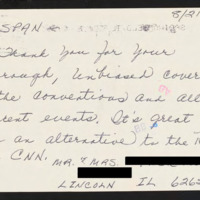 8/21
SPAN
Thank You for Your
rough, Unbiased cover
the conventions and all
rent events. It's great
an alternative to the
CNN.
MR. & MRS.
LINCOLN IL 6265